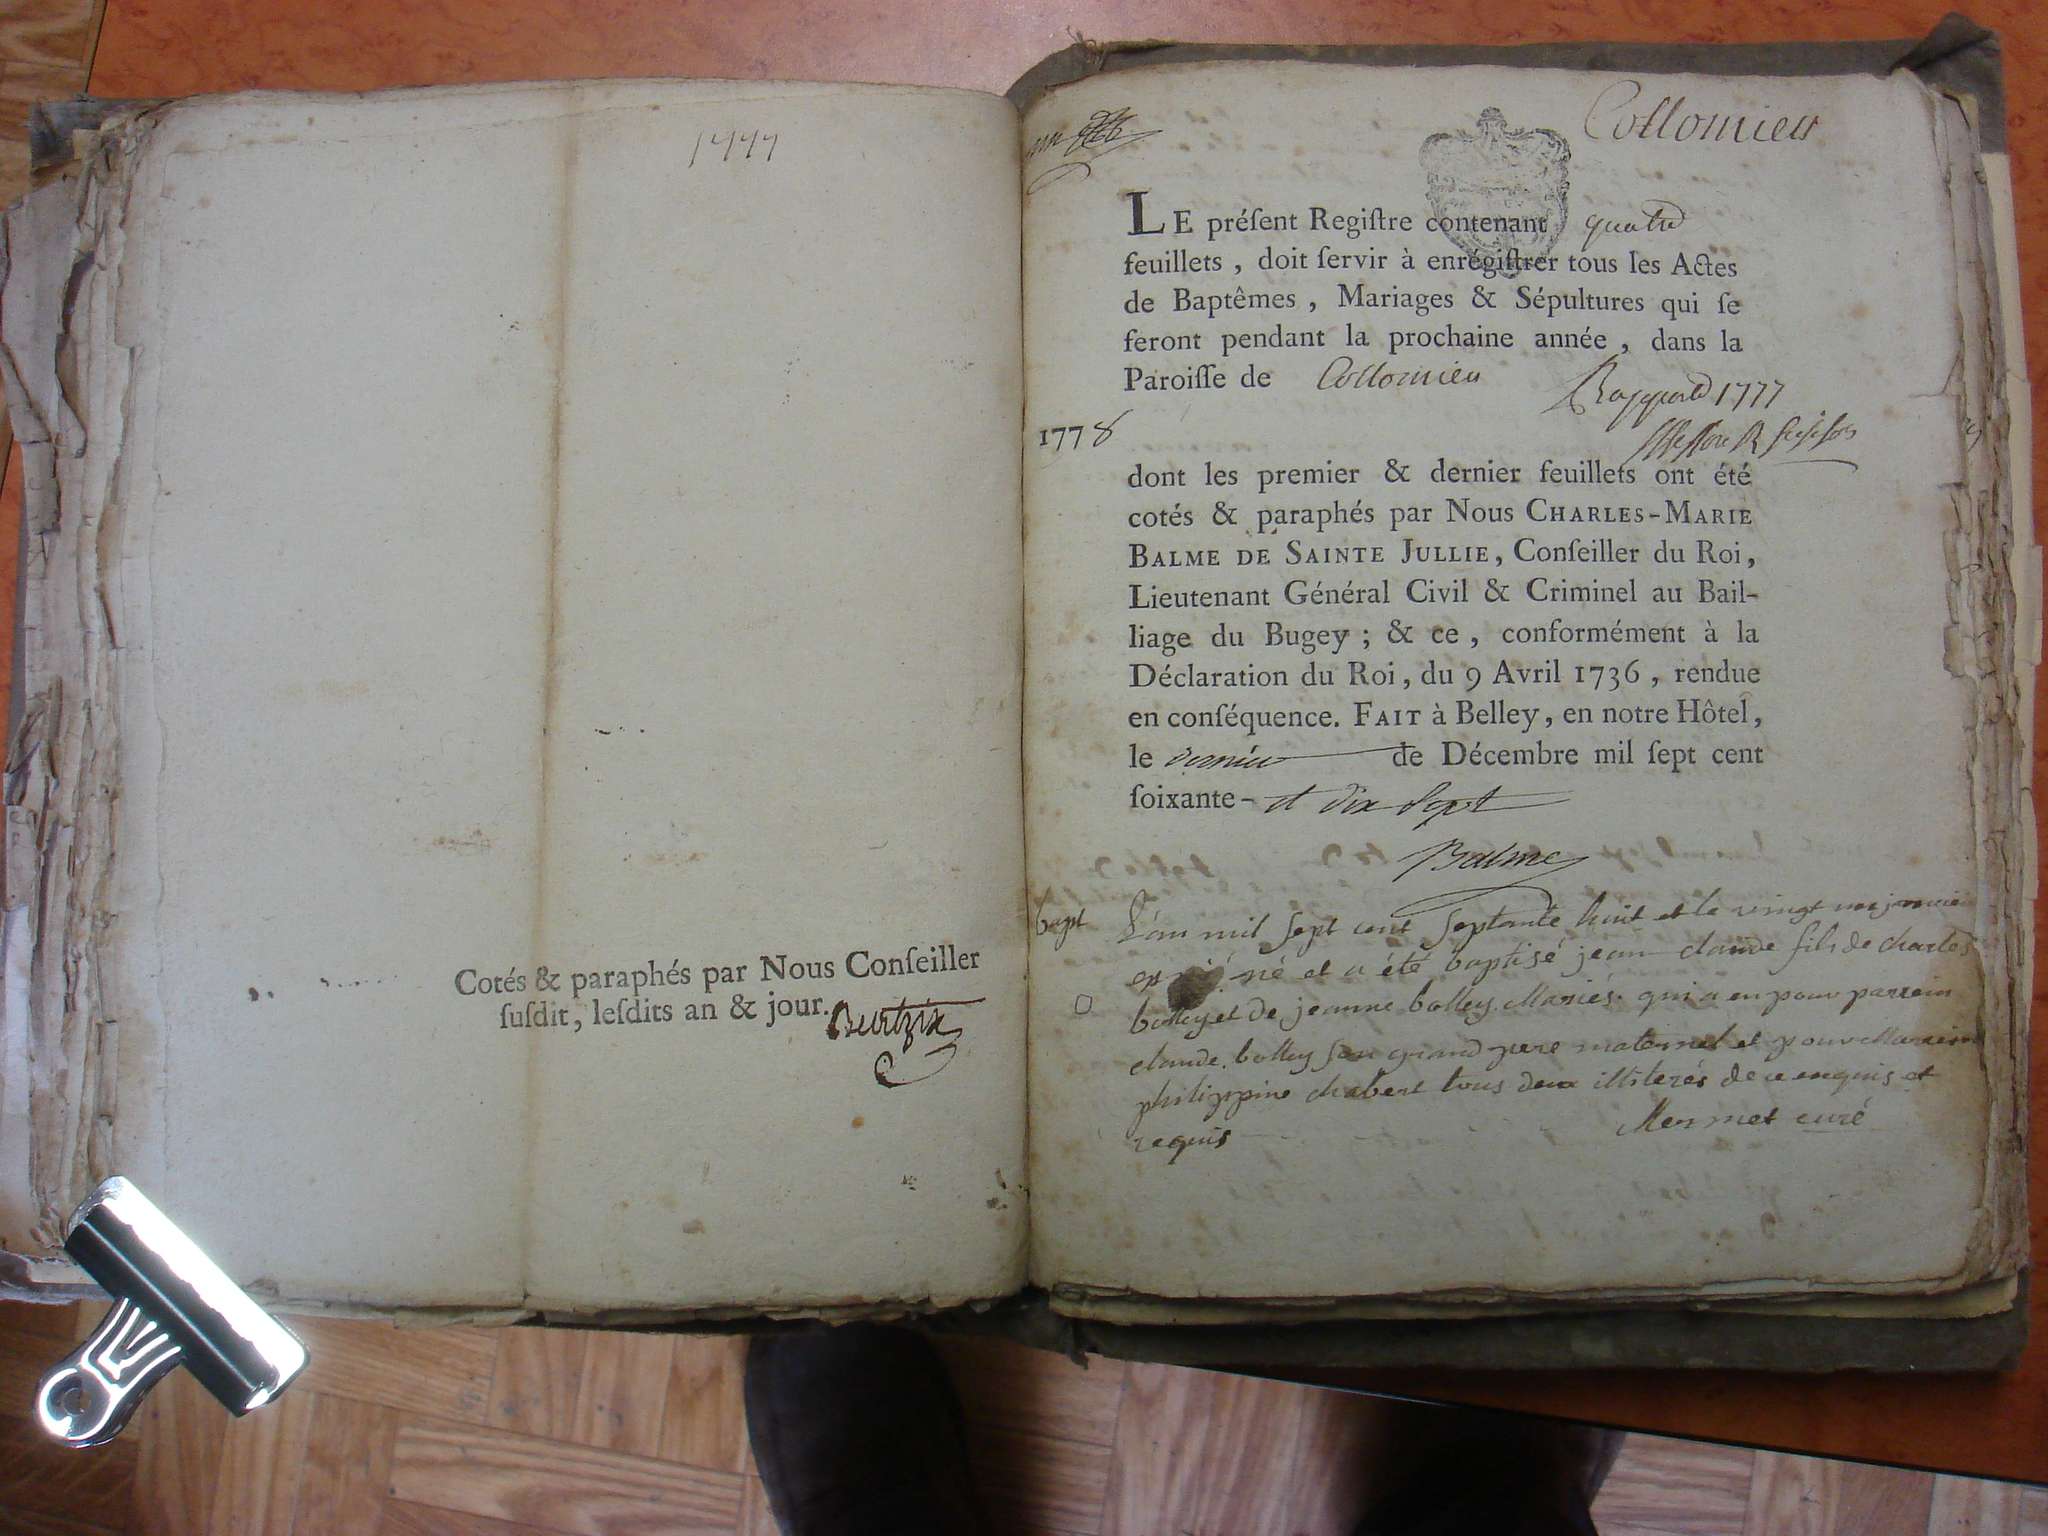 1777
Cotés & paraphés par Nous Conſeiller
ſuſdit, leſdits an & jour.
Collomieu
LE préſent Regiſtre contenant quatre
feuillets, doit ſervir à enrégiſtrer tous les Actes
de Baptêmes, Mariages & Sépultures qui ſe
feront pendant la prochaine année, dans la
Paroiſſe de Collomieu
Rapporté 1777
1778
dont les premier & dernier feuillets ont été
cotés & paraphés par Nous CHARLES-MARIE
BALME DE SAINTE JULLIE, Conſeiller du Roi,
Lieutenant Général Civil & Criminel au Bail-
liage du Bugey; & ce, conformément à la
Déclaration du Roi, du 9 Avril 1736, rendue
en conſéquence. FAIT à Belley, en notre Hôtel,
le dernier de Décembre mil ſept cent
ſoixante- et dix sept
Balme
bapt L'an mil sept cent septante huit et le vingt un janvier
né et a été baptisé jean claude fils de charles
bolley et de jeanne bolley Mariés. qui a eu pour parrein
claude bolley son grand pere maternel et pour Marreine
philippine chabert tous deux illiterés de ce enquis et
requis Mermet curé